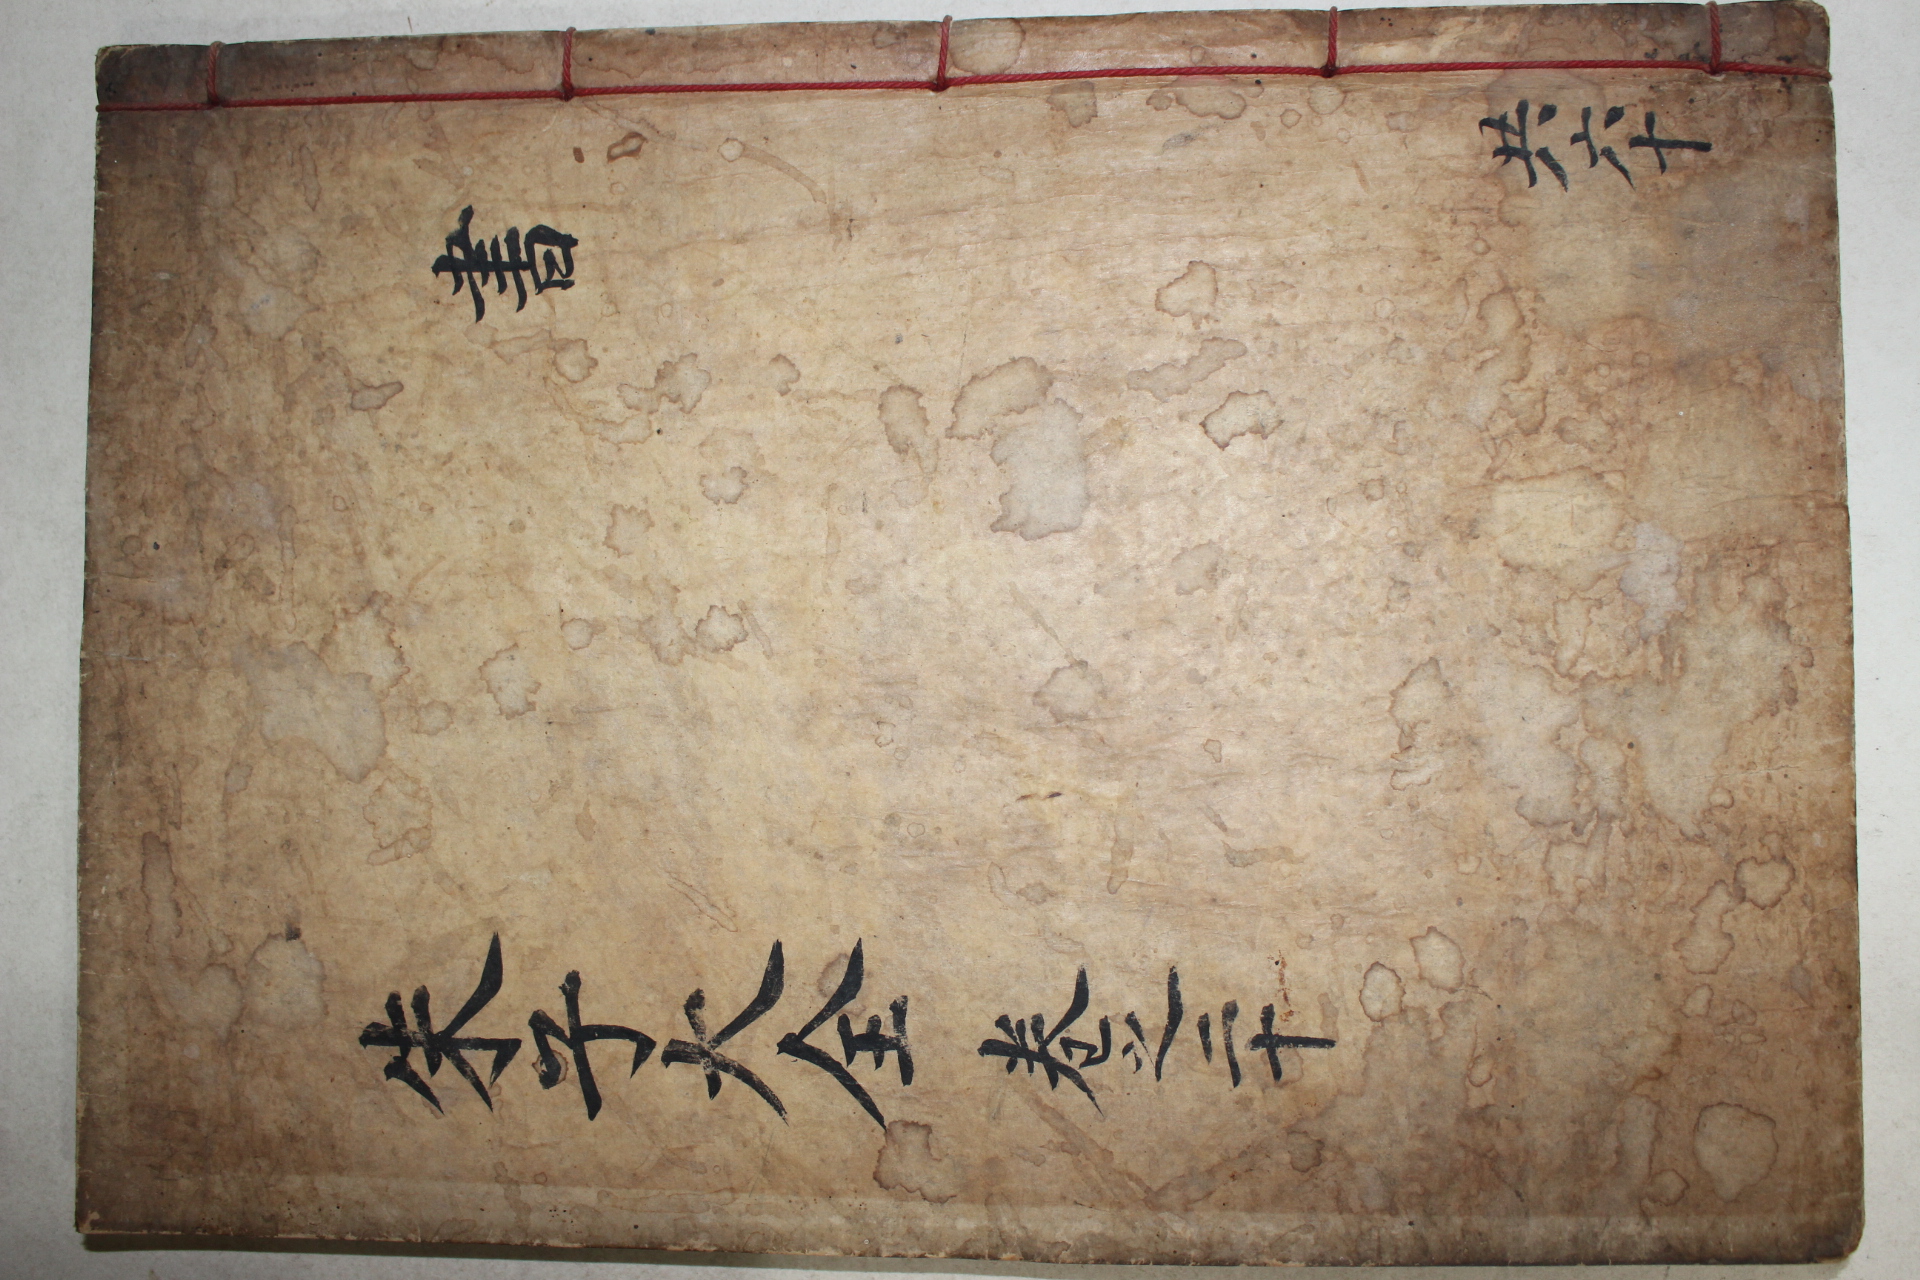 朱子大全 卷之二十
書
共六十